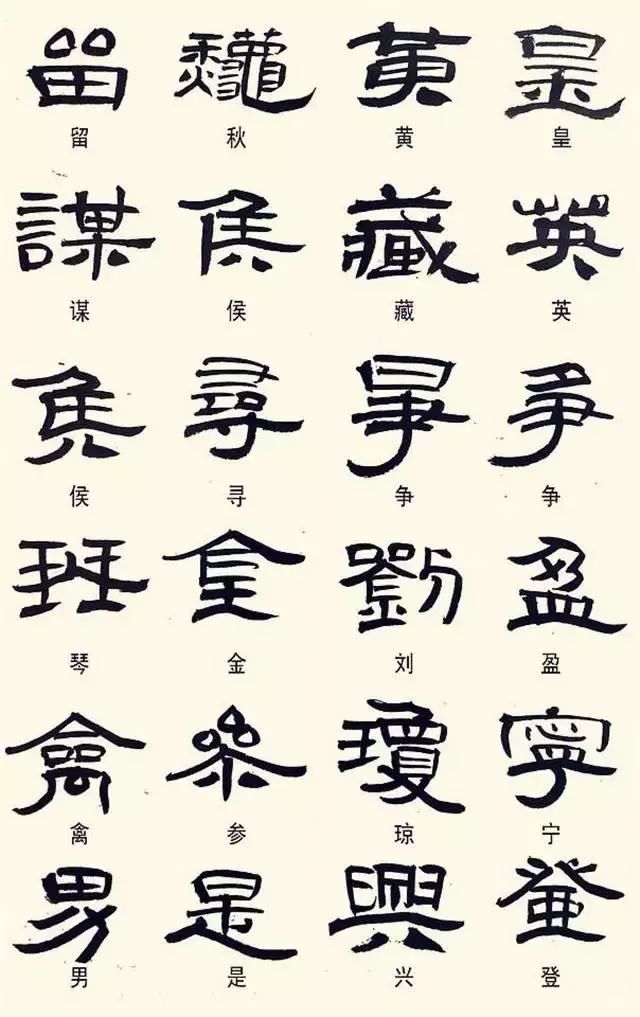 留 龝 黄 皇
留 秋 黄 皇
謀 侯 藏 英
谋 侯 藏 英
侯 尋 爭 爭
侯 寻 争 争
琴 金 劉 盈
琴 金 刘 盈
禽 参 瓊 寧
禽 参 琼 宁
男 是 興 登
男 是 兴 登